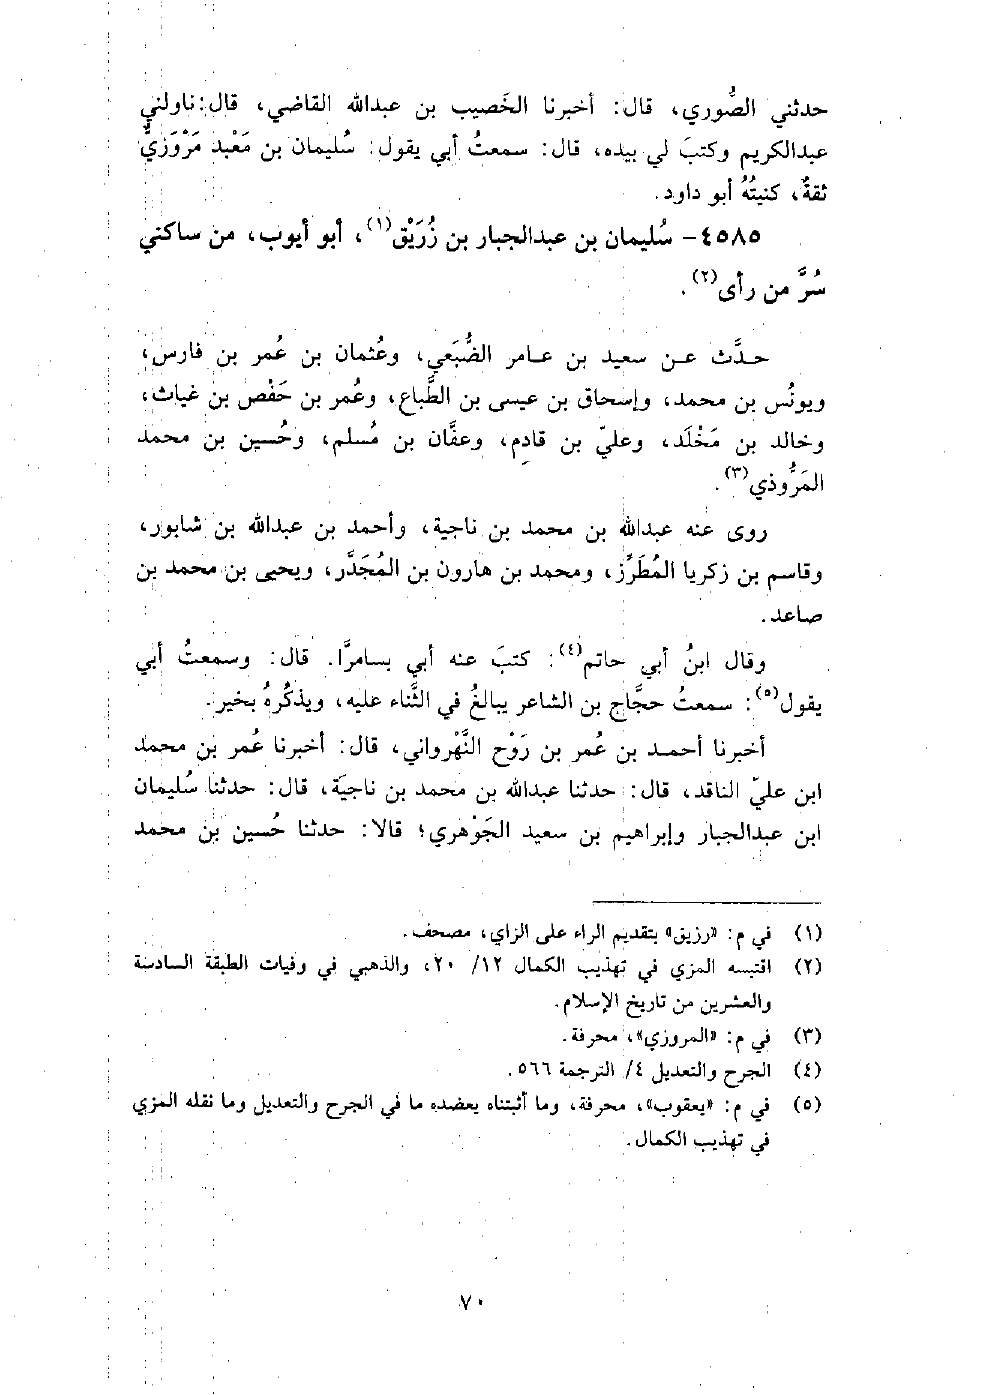 حدثني الصُّوري، قال: أخبرنا الخَصيب بن عبدالله القاضي، قال: ناولني
عبدالكريم وكتبَ لي بيده، قال: سمعتُ أبي يقول: سُليمان بن مَعْبد مَرْوَزيٌّ
ثقةٌ، كنيتُهُ أبو داود.
٤٥٨٥- سُليمان بن عبدالجبار بن زُرَيْق(١)، أبو أيوب، من ساكني
سُرَّ من رأى(٢).
حدَّث عن سعيد بن عامر الضُّبَعي، وعُثمان بن عُمر بن فارس،
ويونُس بن محمد، وإسحاق بن عيسى بن الطَّباع، وعُمر بن حَفْص بن غياث،
وخالد بن مَخْلَد، وعليّ بن قادِم، وعفَّان بن مُسلم، وحُسين بن محمد
المَرُّوذي(٣).
روى عنه عبدالله بن محمد بن ناجية، وأحمد بن عبدالله بن شابور،
وقاسم بن زكريا المُطَرِّز، ومحمد بن هارون بن المُجَدَّر، ويحيى بن محمد بن
صاعد.
وقال ابنُ أبي حاتم(٤): كتبَ عنه أبي بسامرَّا. قال: وسمعتُ أبي
يقول(٥): سمعتُ حجَّاج بن الشاعر يبالغُ في الثَّناء عليه، ويذكُرهُ بخير.
أخبرنا أحمد بن عُمر بن رَوْح النَّهْرواني، قال: أخبرنا عُمر بن محمد
ابن عليّ الناقد، قال: حدثنا عبدالله بن محمد بن ناجيَة، قال: حدثنا سُليمان
ابن عبدالجبار وإبراهيم بن سعيد الجَوْهري؛ قالا: حدثنا حُسين بن محمد
(١) في م: «رزيق» بتقديم الراء على الزاي، مصحف.
(٢) اقتبسه المزي في تهذيب الكمال ١٢/ ٢٠، والذهبي في وفيات الطبقة السادسة
والعشرين من تاريخ الإسلام.
(٣) في م: «المروزي»، محرفة.
(٤) الجرح والتعديل ٤/ الترجمة ٥٦٦.
(٥) في م: «يعقوب»، محرفة، وما أثبتناه يعضده ما في الجرح والتعديل وما نقله المزي
في تهذيب الكمال.
٧٠